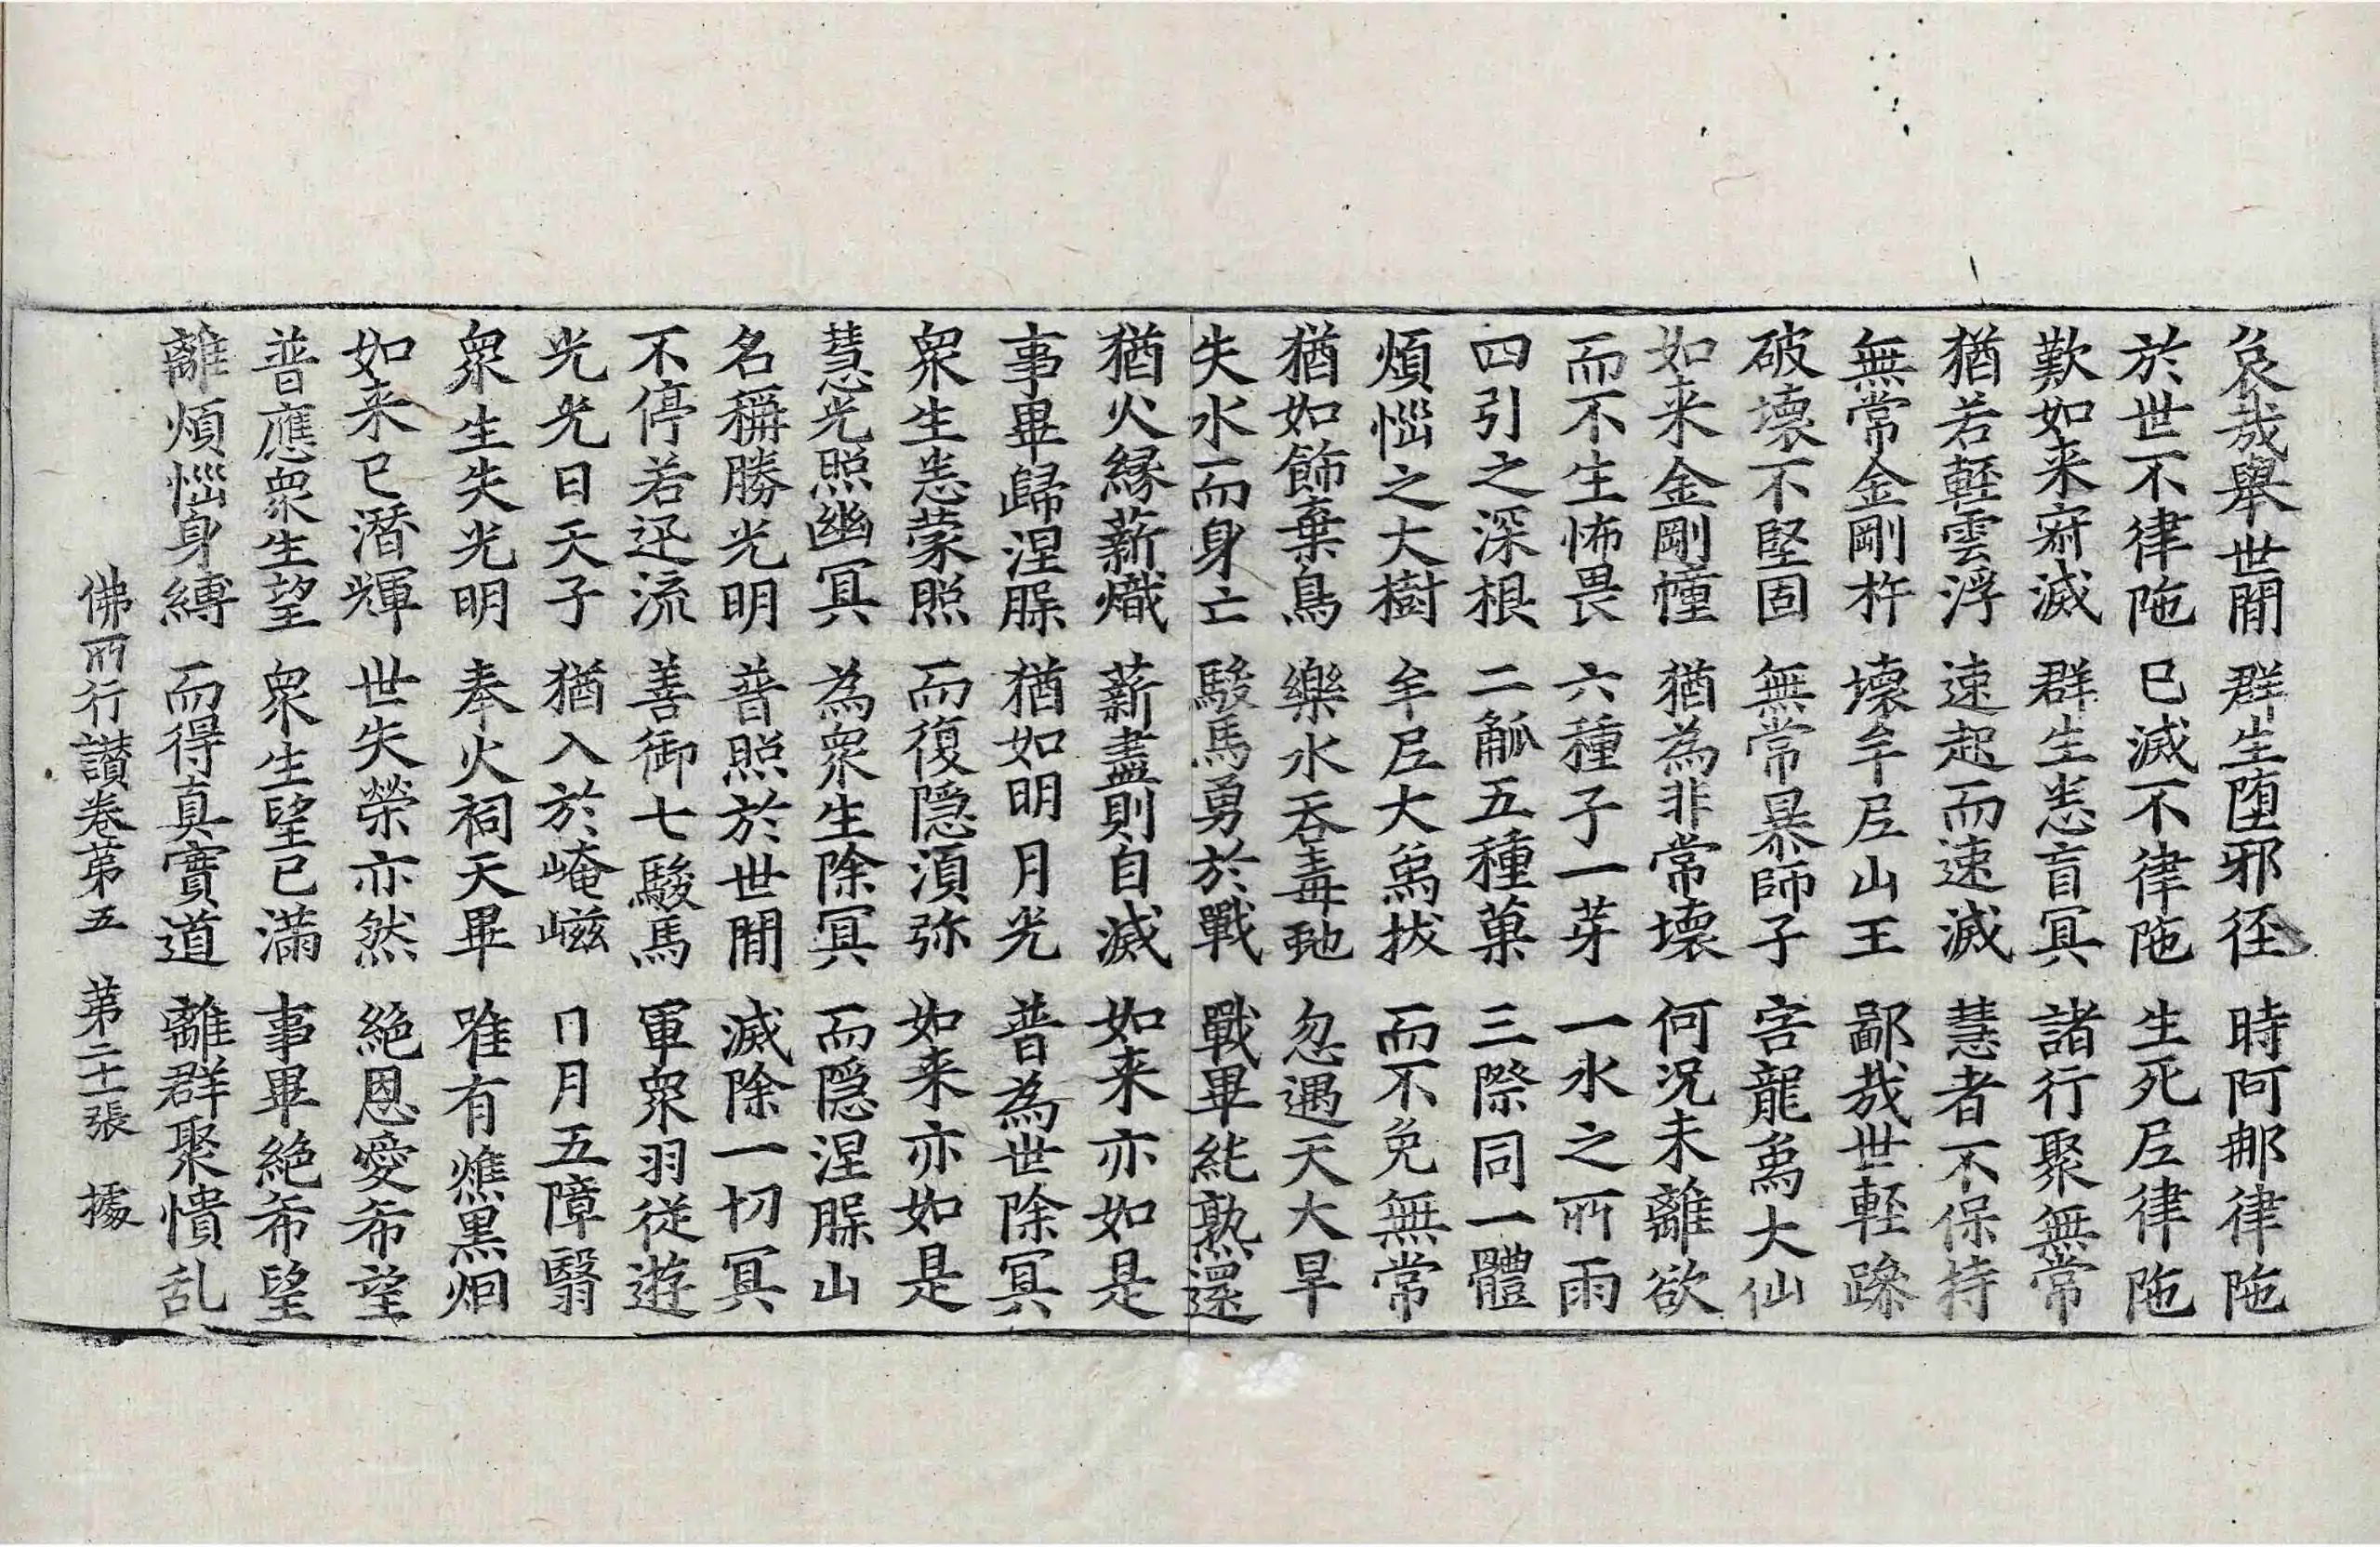 哀哉舉世間 群生墮邪徑 時阿那律陁
於世不律陁 已滅不律陁 生死𡰱律陁
歎如来㝛滅 群生悉盲冥 諸行聚無常
猶若輕雲浮 速起而速滅 慧者不保持
無常金剛杵 壞牟𡰱山王 鄙哉世輕躁
破壞不堅固 無常暴師子 害龍象大仙
如来金剛幢 猶為非常壞 何况未離欲
而不生怖畏 六種子一芽 一水之所雨
四引之深根 二觚五種菓 三際同一體
煩惱之大樹 牟𡰱大象拔 而不免無常
猶如飾棄鳥 樂水吞毒虵 忽遇天大旱
失水而身亡 駿馬勇於戰 戰畢純熟還
猶火緣薪熾 薪盡則自滅 如来亦如是
事畢歸涅槃 猶如明月光 普為世除冥
衆生悉蒙照 而復隱湏弥 如来亦如是
慧光照幽冥 為衆生除冥 而隱涅槃山
名稱勝光明 普照於世間 滅除一切冥
不停若迅流 善御七駿馬 軍衆羽從遊
光光日天子 猶入於崦嵫 日月五障翳
衆生失光明 奉火祠天畢 唯有燋黒烟
如来已潛輝 世失榮亦然 絶恩愛希望
普應衆生望 衆生望已滿 事畢絶希望
離煩惱身縛 而得真實道 離群聚憒乱
佛所行讃卷苐五 苐二十一張 據